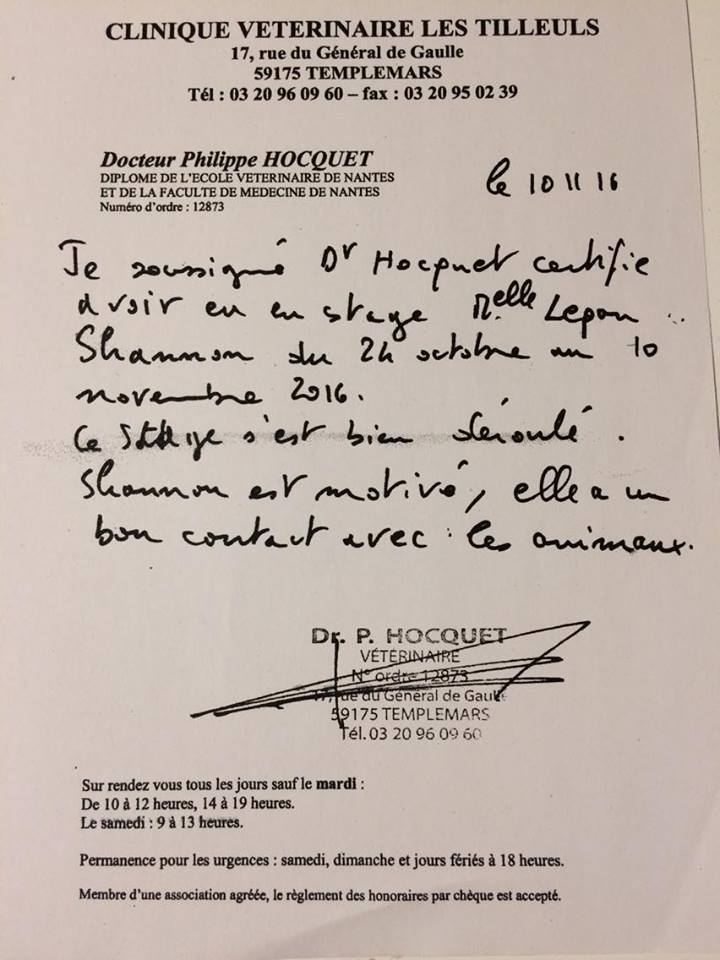 CLINIQUE VETERINAIRE LES TILLEULS
17, rue du Général de Gaulle
59175 TEMPLEMARS
Tél : 03 20 96 09 60 – fax : 03 20 95 02 39
Docteur Philippe HOCQUET
DIPLOME DE L'ECOLE VETERINAIRE DE NANTES
ET DE LA FACULTE DE MEDECINE DE NANTES
Numéro d'ordre : 12873
le 10 11 16
Je soussigné Dr Hocquet certifie
avoir eu en stage Melle
Shannon du 24 octobre au 10
novembre 2016.
Ce stage s'est bien déroulé.
Shannon est motivé, elle a un
bon contact avec les animaux.
Dr. P. HOCQUET
VÉTÉRINAIRE
N° ordre 12873
17, rue du Général de Gaulle
59175 TEMPLEMARS
Tél. 03 20 96 09 60
Sur rendez vous tous les jours sauf le mardi :
De 10 à 12 heures, 14 à 19 heures.
Le samedi : 9 à 13 heures.
Permanence pour les urgences : samedi, dimanche et jours fériés à 18 heures.
Membre d'une association agréée, le règlement des honoraires par chèque est accepté.